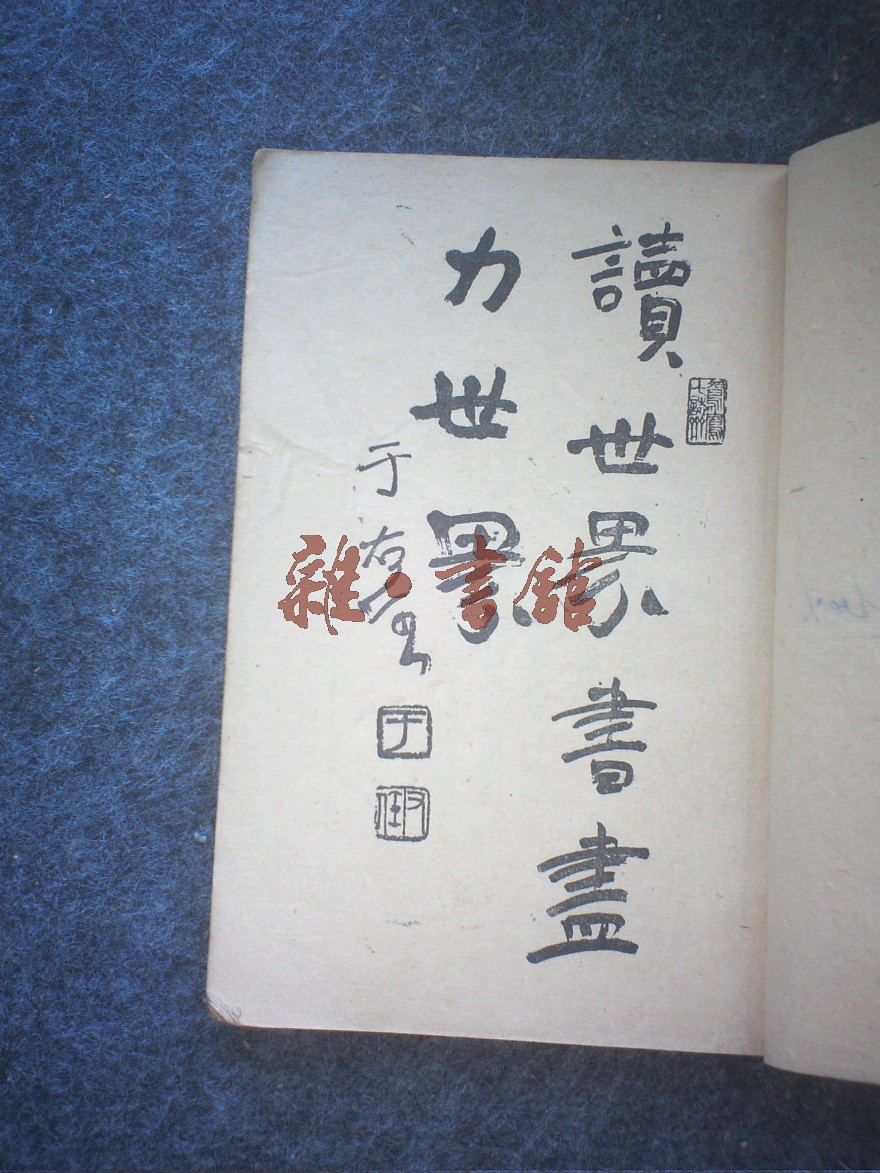 讀世界書盡
力世界
于右任
于
雜·書館